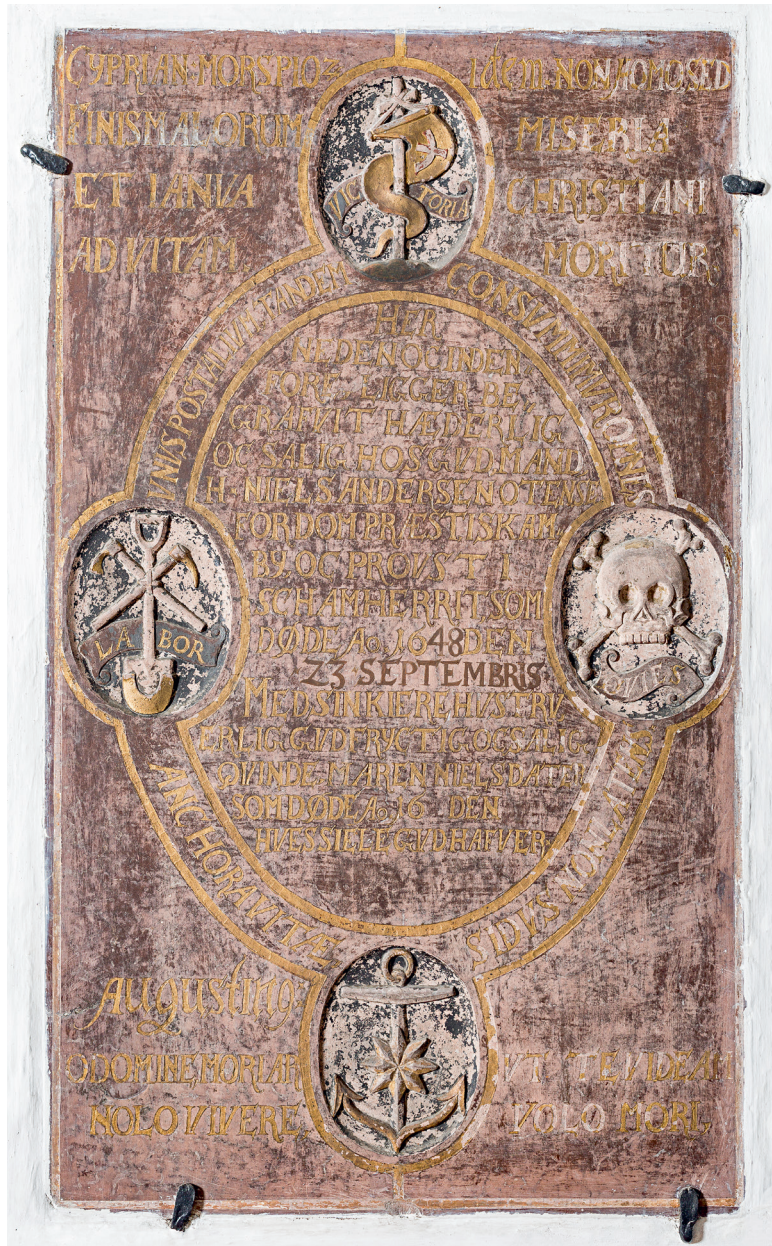 CYPRIAN. MORS PIOZ
FINIS MALORUM
ET IANVA
AD VITAM.
Idem. NON HOMO SED
MISERIA
CHRISTIANI
MORITUR.
VICTORIA
CONSUMIMUR OMNES
HER
NEDEN OG INDEN
FORE LIGGER BE
GRAFVIT HÆDERLIG
OC SALIG HOS GVD, MAND
H. NIELS ANDERSEN OTENSE
FORDOM PRÆST I SKAM
BY OC PROVST I
SCHAMHERRIT, SOM
DØDE Aº. 1648 DEN
23 SEPTEMBRIS
MED SIN KIERE HUSTRU
ERLIG GVDFRYCTIG OG SALIG
QVINDE MAREN NIELSDATER
SOM DØDE Aº 16 DEN
HVES SIELE GVD HAFVER
LABOR
QVIES
ANCHORA VITÆ
SIDVS NON
Augustino:
O DOMINE, MORIAR
NOLO VIVERE
VT TE VIDEAM
VOLO MORI,